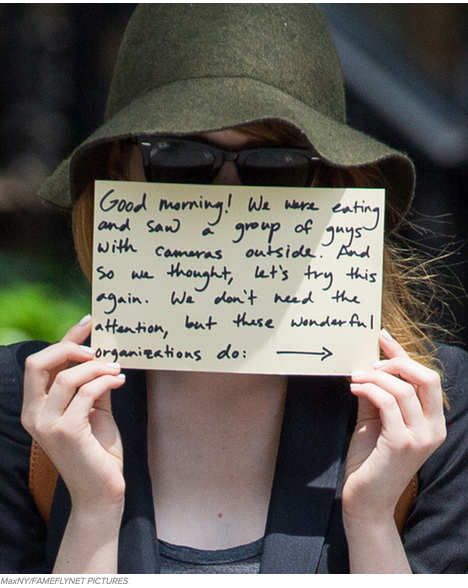 Good morning! We were eating
and saw a group of guys
with cameras outside. And
so we thought, let's try this
again. We don't need the
attention, but these wonderful
organizations do: →
MaxNY/FAMEFLYNET PICTURES